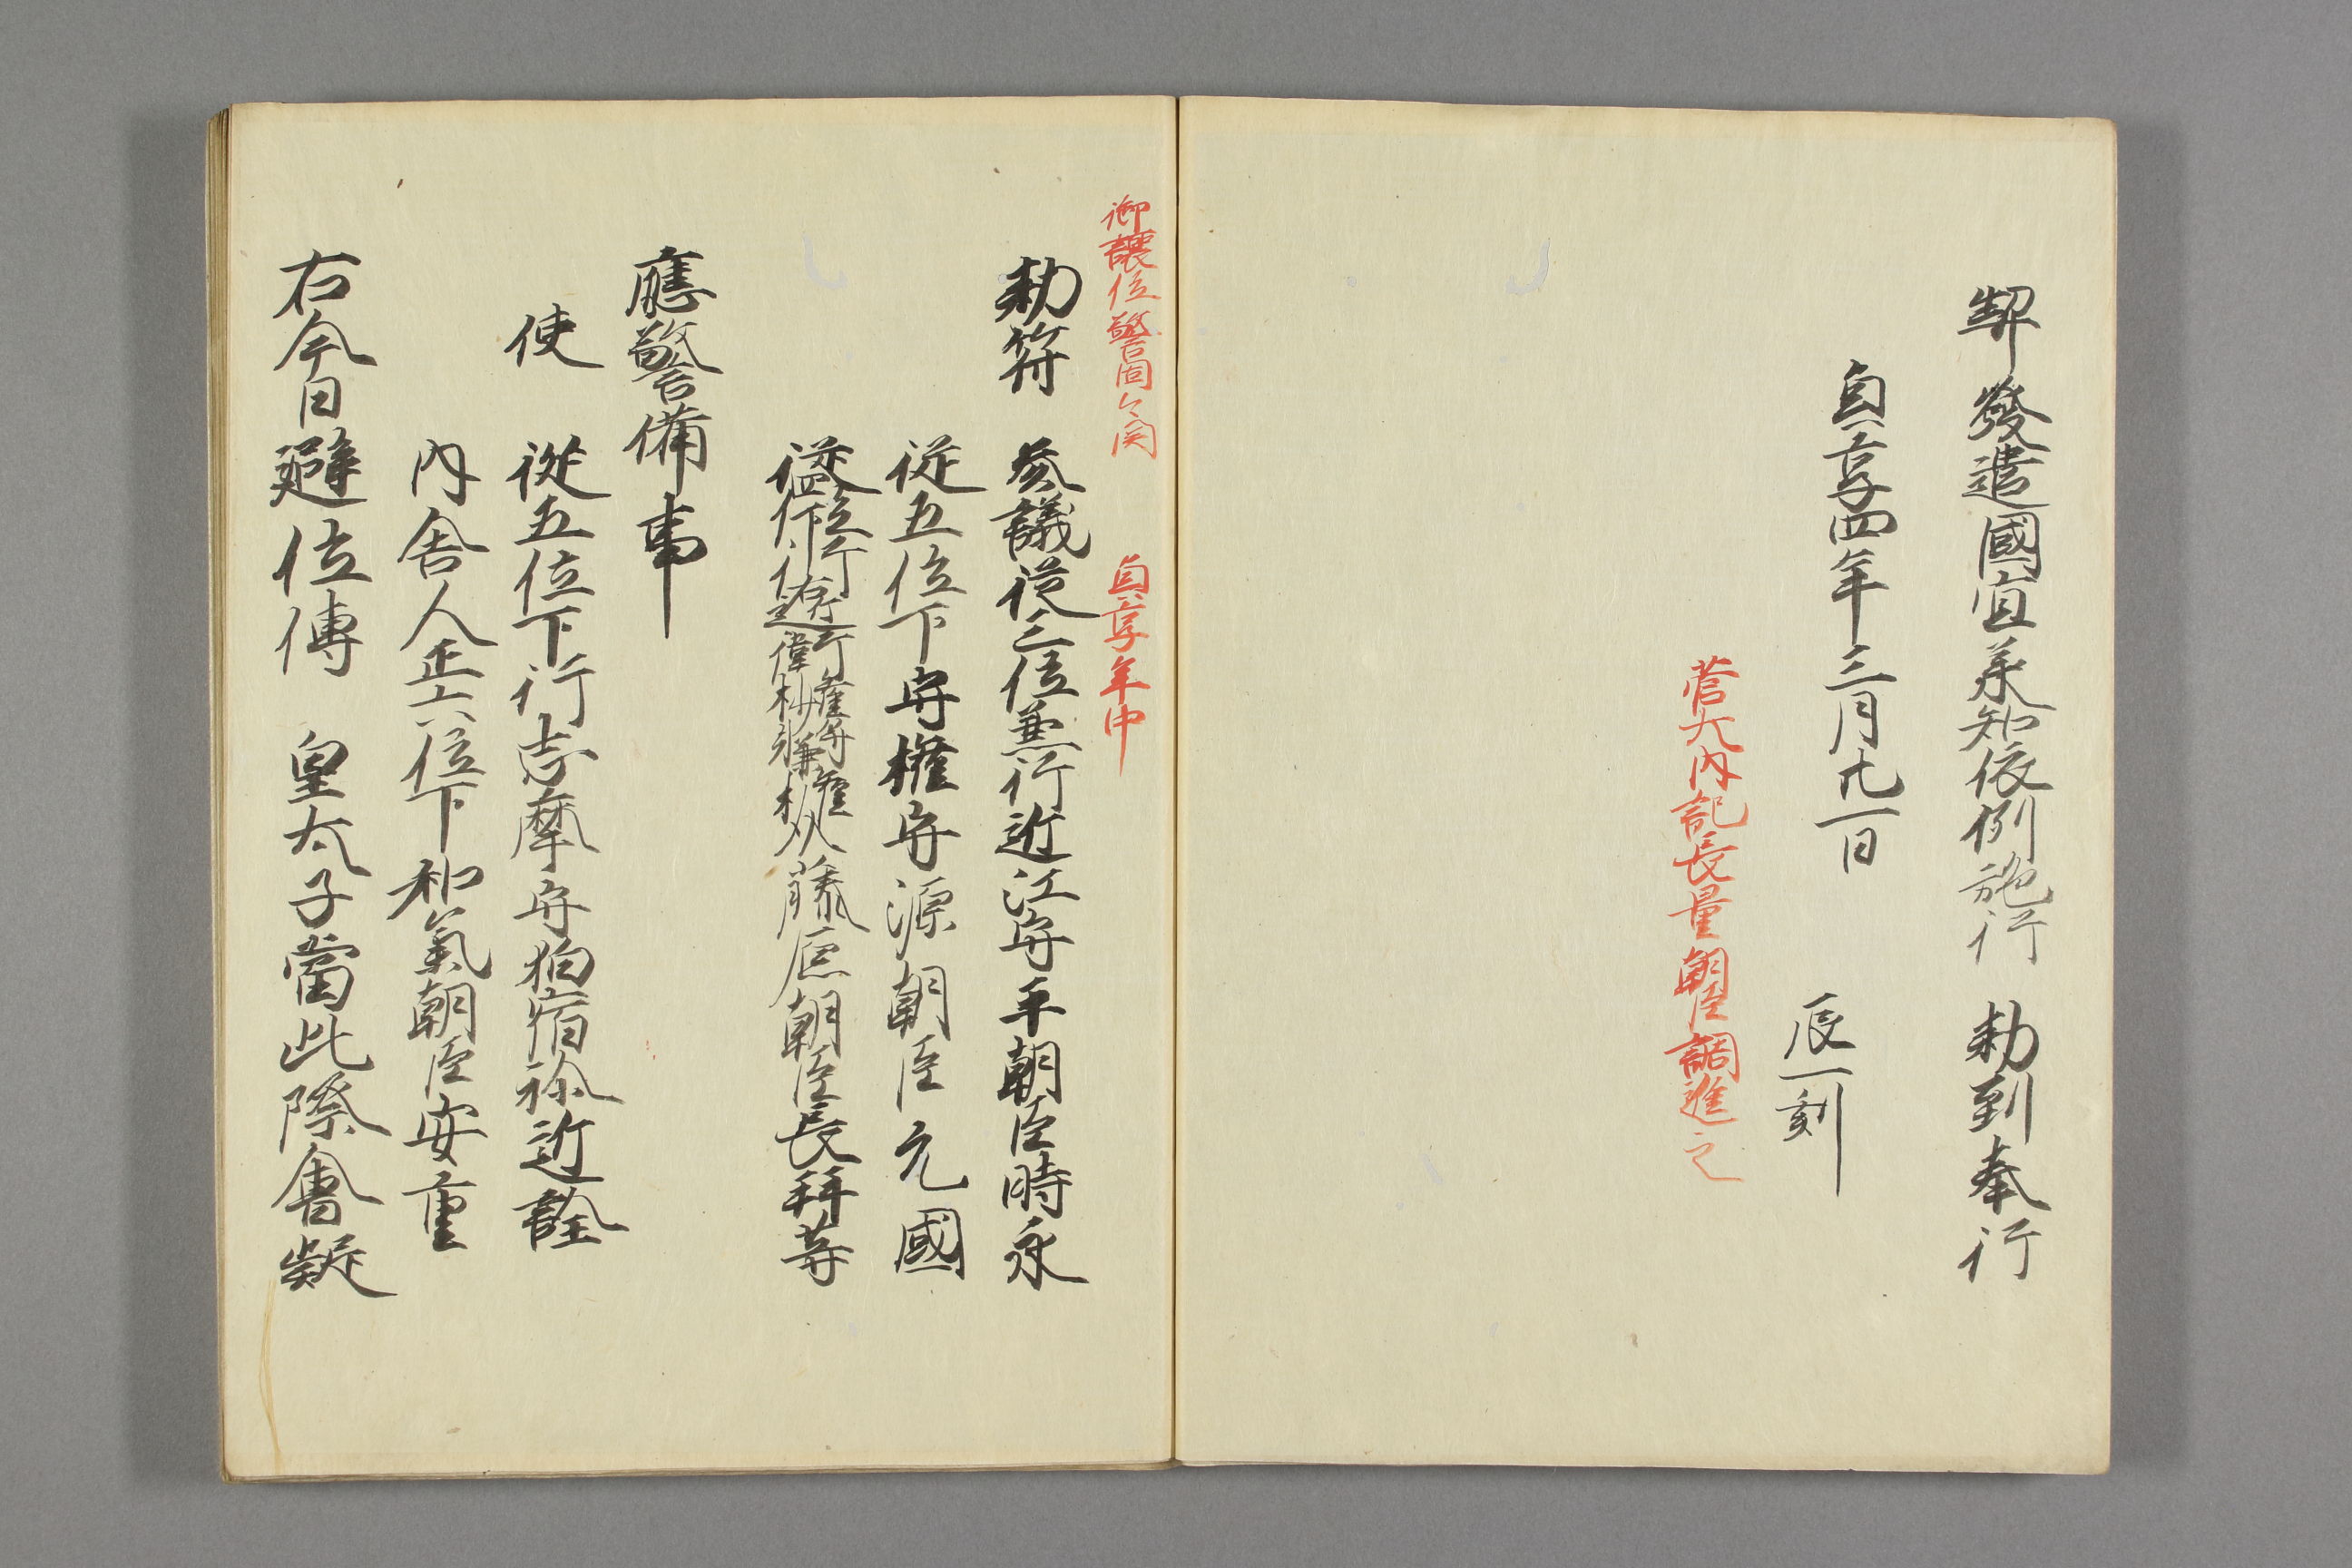 契發遣國宜承知依例施行　勅到奉行
貞享四年三月廿一日
辰一刻
菅大内記長量朝臣調進之
御譲位警固々関　貞享年中
勅符　参議従三位兼行近江守平朝臣時永
従五位下守権守源朝臣元國
藤原朝臣長
應警備事
使　従五位下行志摩守狛宿祢近詮
内舎人正六位下和氣朝臣安重
右今日避位傳　皇太子當此際會疑